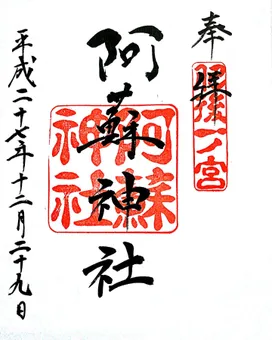 奉拝
肥後一ノ宮
阿蘇神社
阿蘇神社
平成二十七年十二月二十九日